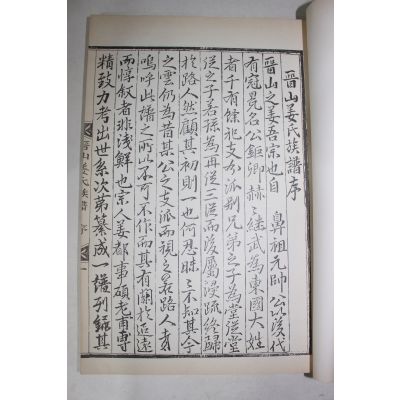 晉山姜氏族譜序
晉山之姜吾宗也自 鼻祖元帥公以後代
有冠冕名公鉅卿赫〻継武為東國大姓
者千有餘祀支分派别兄弟之子為堂從堂
從之子若孫為再從三從而後屬浸疏終歸
於路人然顧其初則一也何忍昧〻不知其今
之雲仍為昔某公之支派而視之若路人者
嗚呼此譜之所以不可不作而其有關於追遠
而惇叙者非淺鮮也宗人姜都事碩老甫專
精致力考出世系次苐纂成一譜列錄其
晉山姜氏族譜 序 一